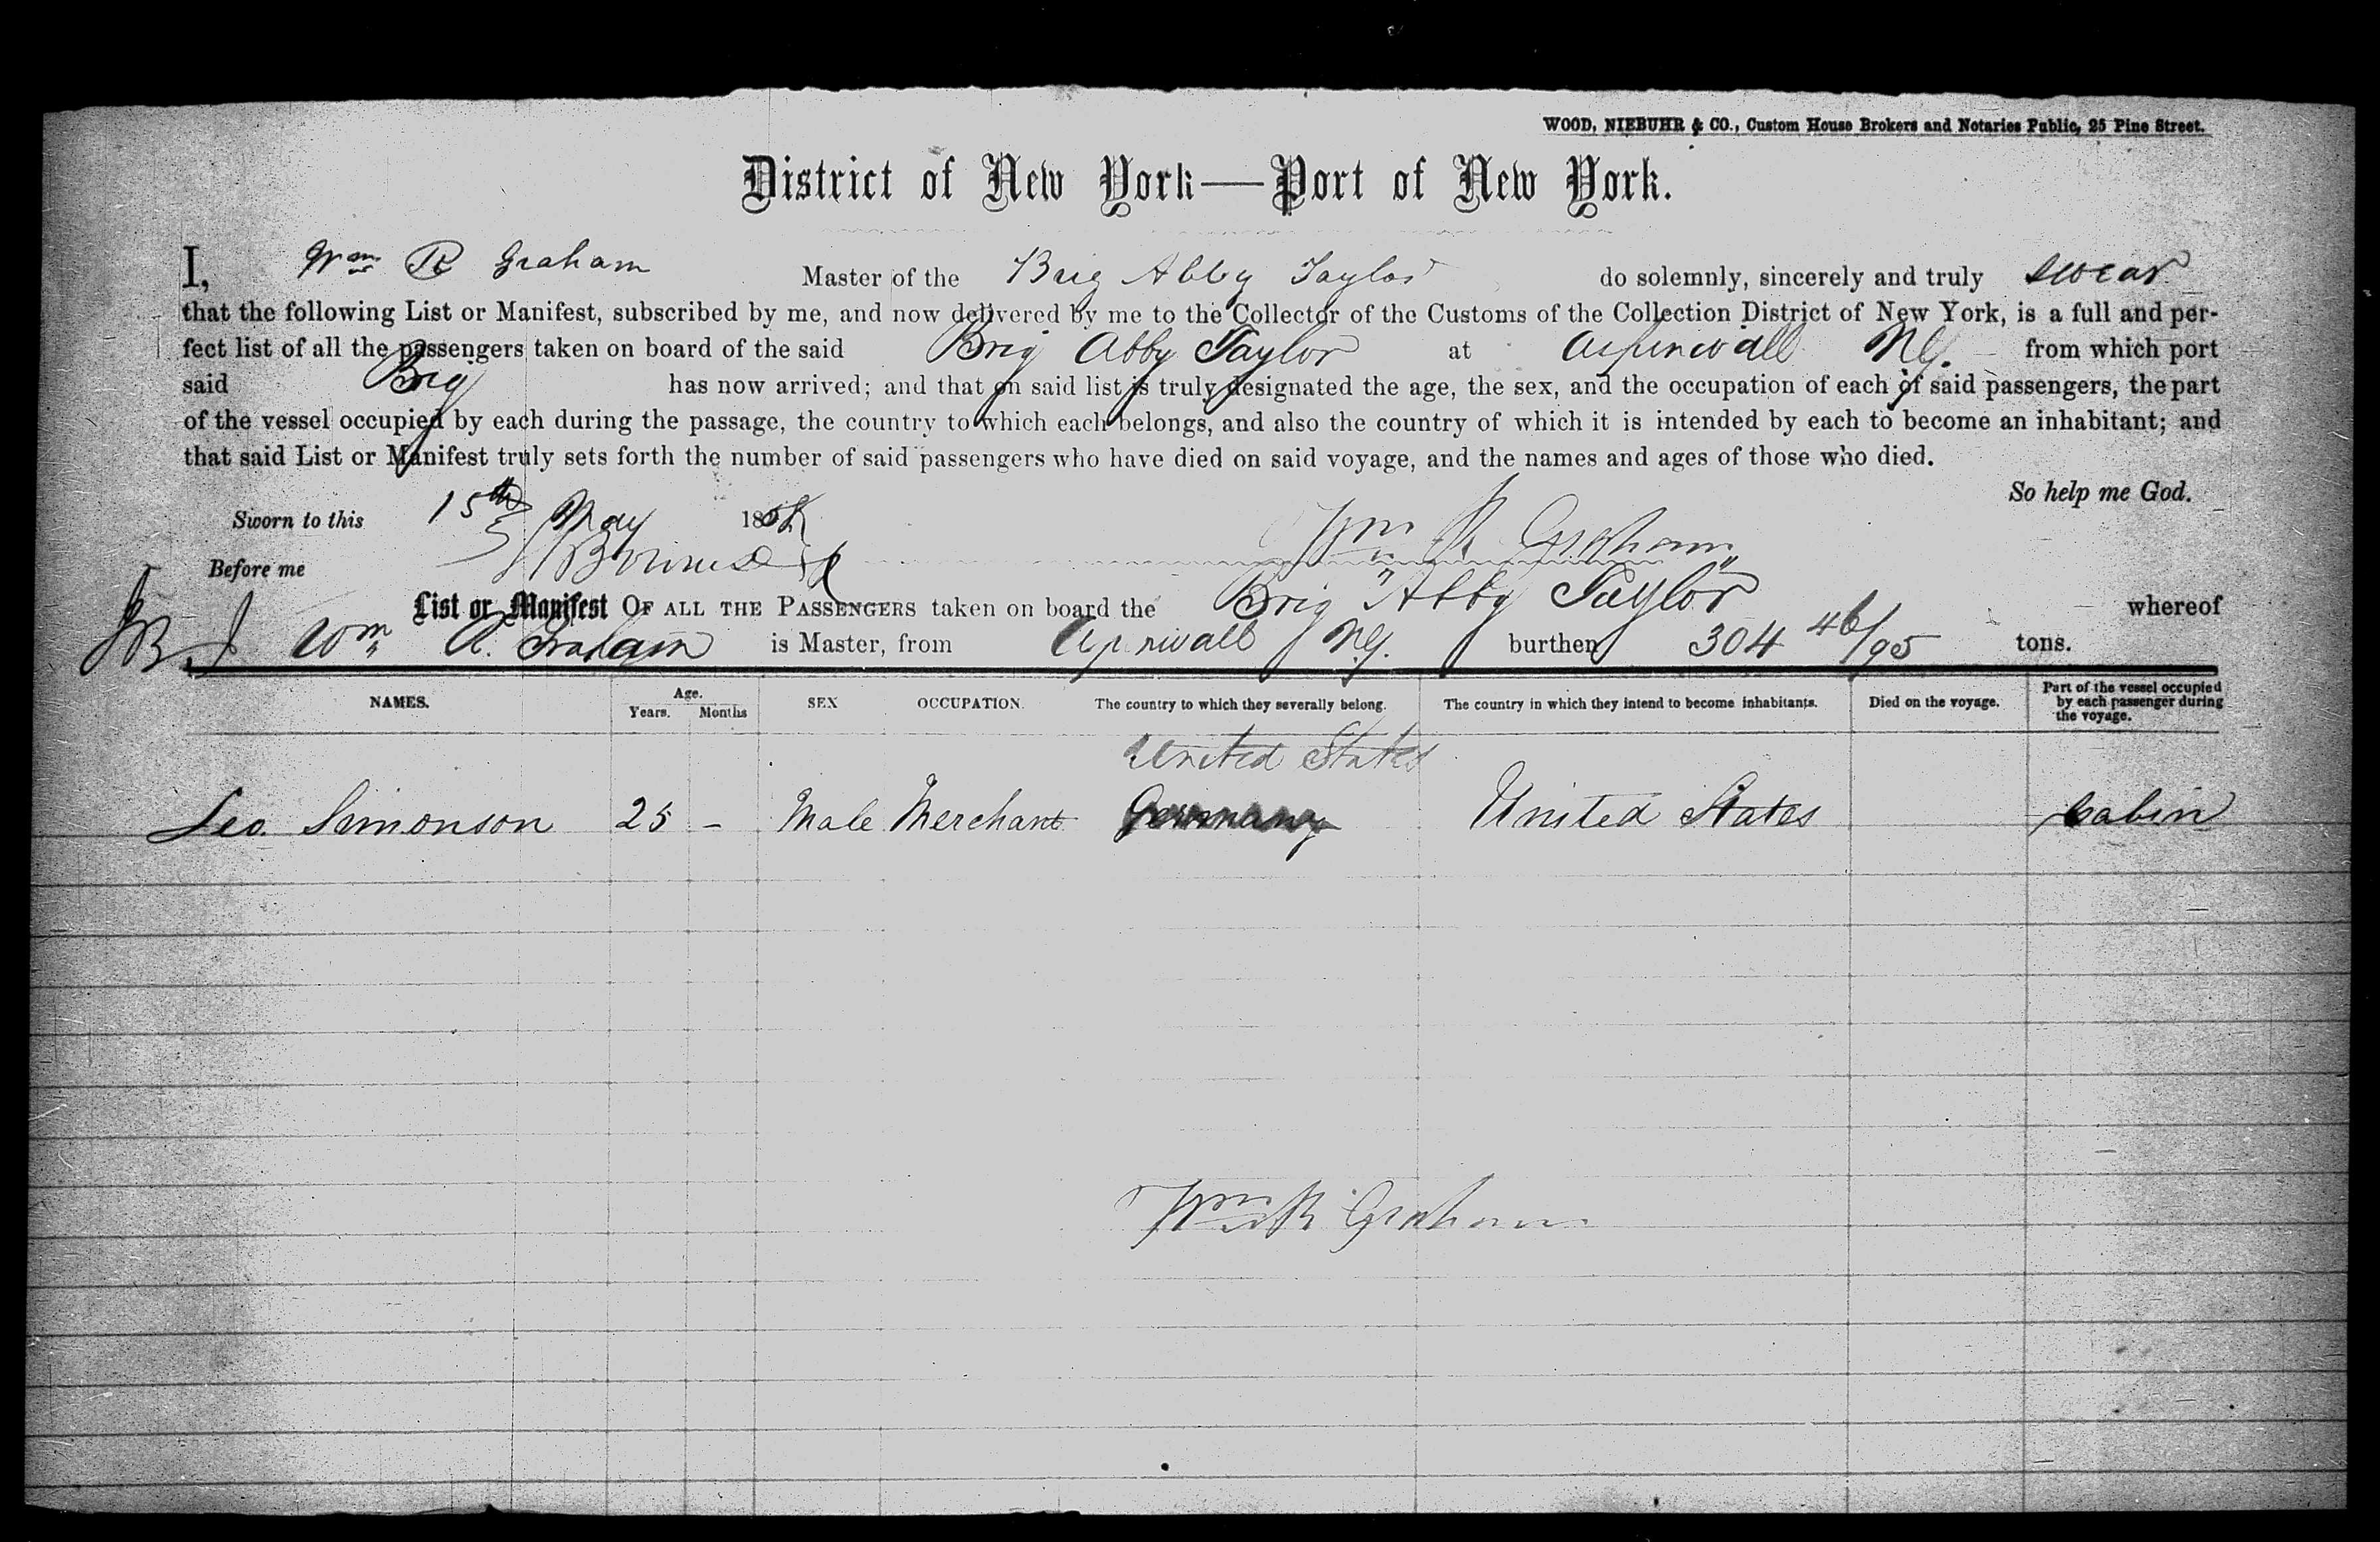 WOOD, NIEBUHR & CO., Custom House Brokers and Notaries Public, 25 Pine Street.
District of New York—Port of New York.
I, Wm R Graham Master of the Brig Abby Taylor do solemnly, sincerely and truly swear
that the following List or Manifest, subscribed by me, and now delivered by me to the Collector of the Customs of the Collection District of New York, is a full and per-
fect list of all the passengers taken on board of the said Brig Abby Taylor at Aspinwall NG. from which port
said Brig has now arrived; and that on said list is truly designated the age, the sex, and the occupation of each of said passengers, the part
of the vessel occupied by each during the passage, the country to which each belongs, and also the country of which it is intended by each to become an inhabitant; and
that said List or Manifest truly sets forth the number of said passengers who have died on said voyage, and the names and ages of those who died.
So help me God.
Sworn to this 15th May 18
Wm R Graham
Before me
List or Manifest OF ALL THE PASSENGERS taken on board the Brig "Abby Taylor" whereof
Wm R. Graham is Master, from Aspinwall NG. burthen 304 46/95 tons.
NAMES. Age. Years. Months SEX OCCUPATION. The country to which they severally belong. The country in which they intend to become inhabitants. Died on the voyage. Part of the vessel occupied by each passenger during the voyage.
United States
Leo. Simonson 25 - Male Merchant Germany United States Cabin
Wm R Graham